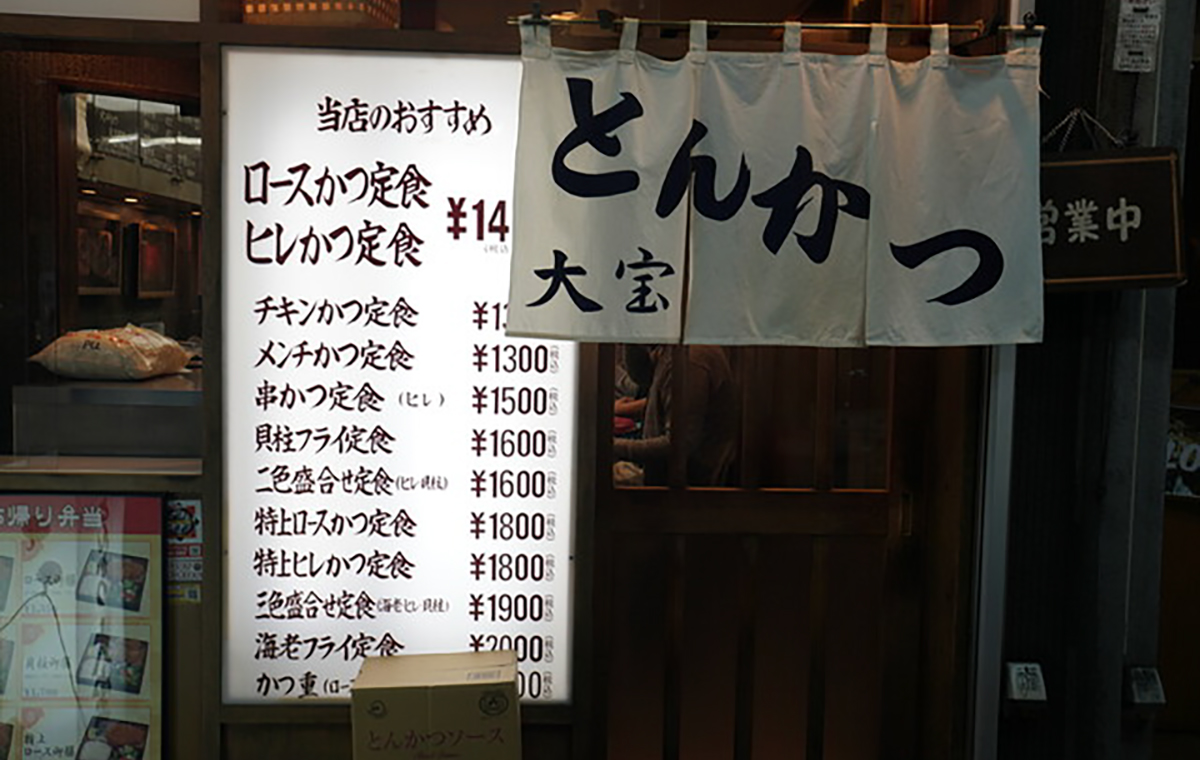 当店のおすすめ
ロースかつ定食
ヒレかつ定食
¥14
チキンかつ定食 ¥13
メンチかつ定食 ¥1300(税込)
串かつ定食 (ヒレ) ¥1500(税込)
貝柱フライ定食 ¥1600(税込)
二色盛合せ定食(ヒレ貝柱) ¥1600(税込)
特上ロースかつ定食 ¥1800(税込)
特上ヒレかつ定食 ¥1800(税込)
三色盛合せ定食(海老ヒレ貝柱) ¥1900(税込)
海老フライ定食 ¥2000(税込)
かつ重(ロー 00(税込)
とんかつ
大宝
営業中
とんかつソース
お帰り弁当